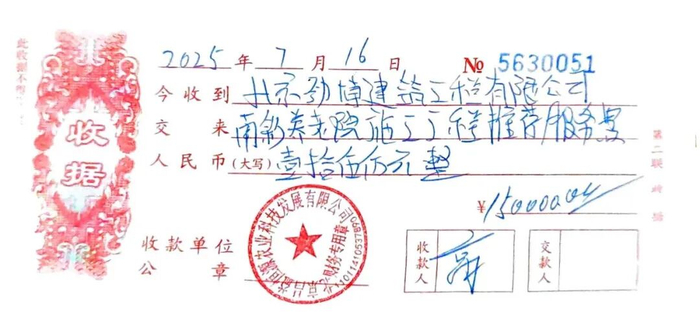 收据
2025年7月16日 № 5630051
今收到 北京劲博建筑工程有限公司
交来 南彩养老院施工工程推荐服务费
人民币(大写) 壹拾伍万元整
¥150000.00
收款单位
公章
收款人
交款人
第二联
财务专用章
农业科技发展有限公司